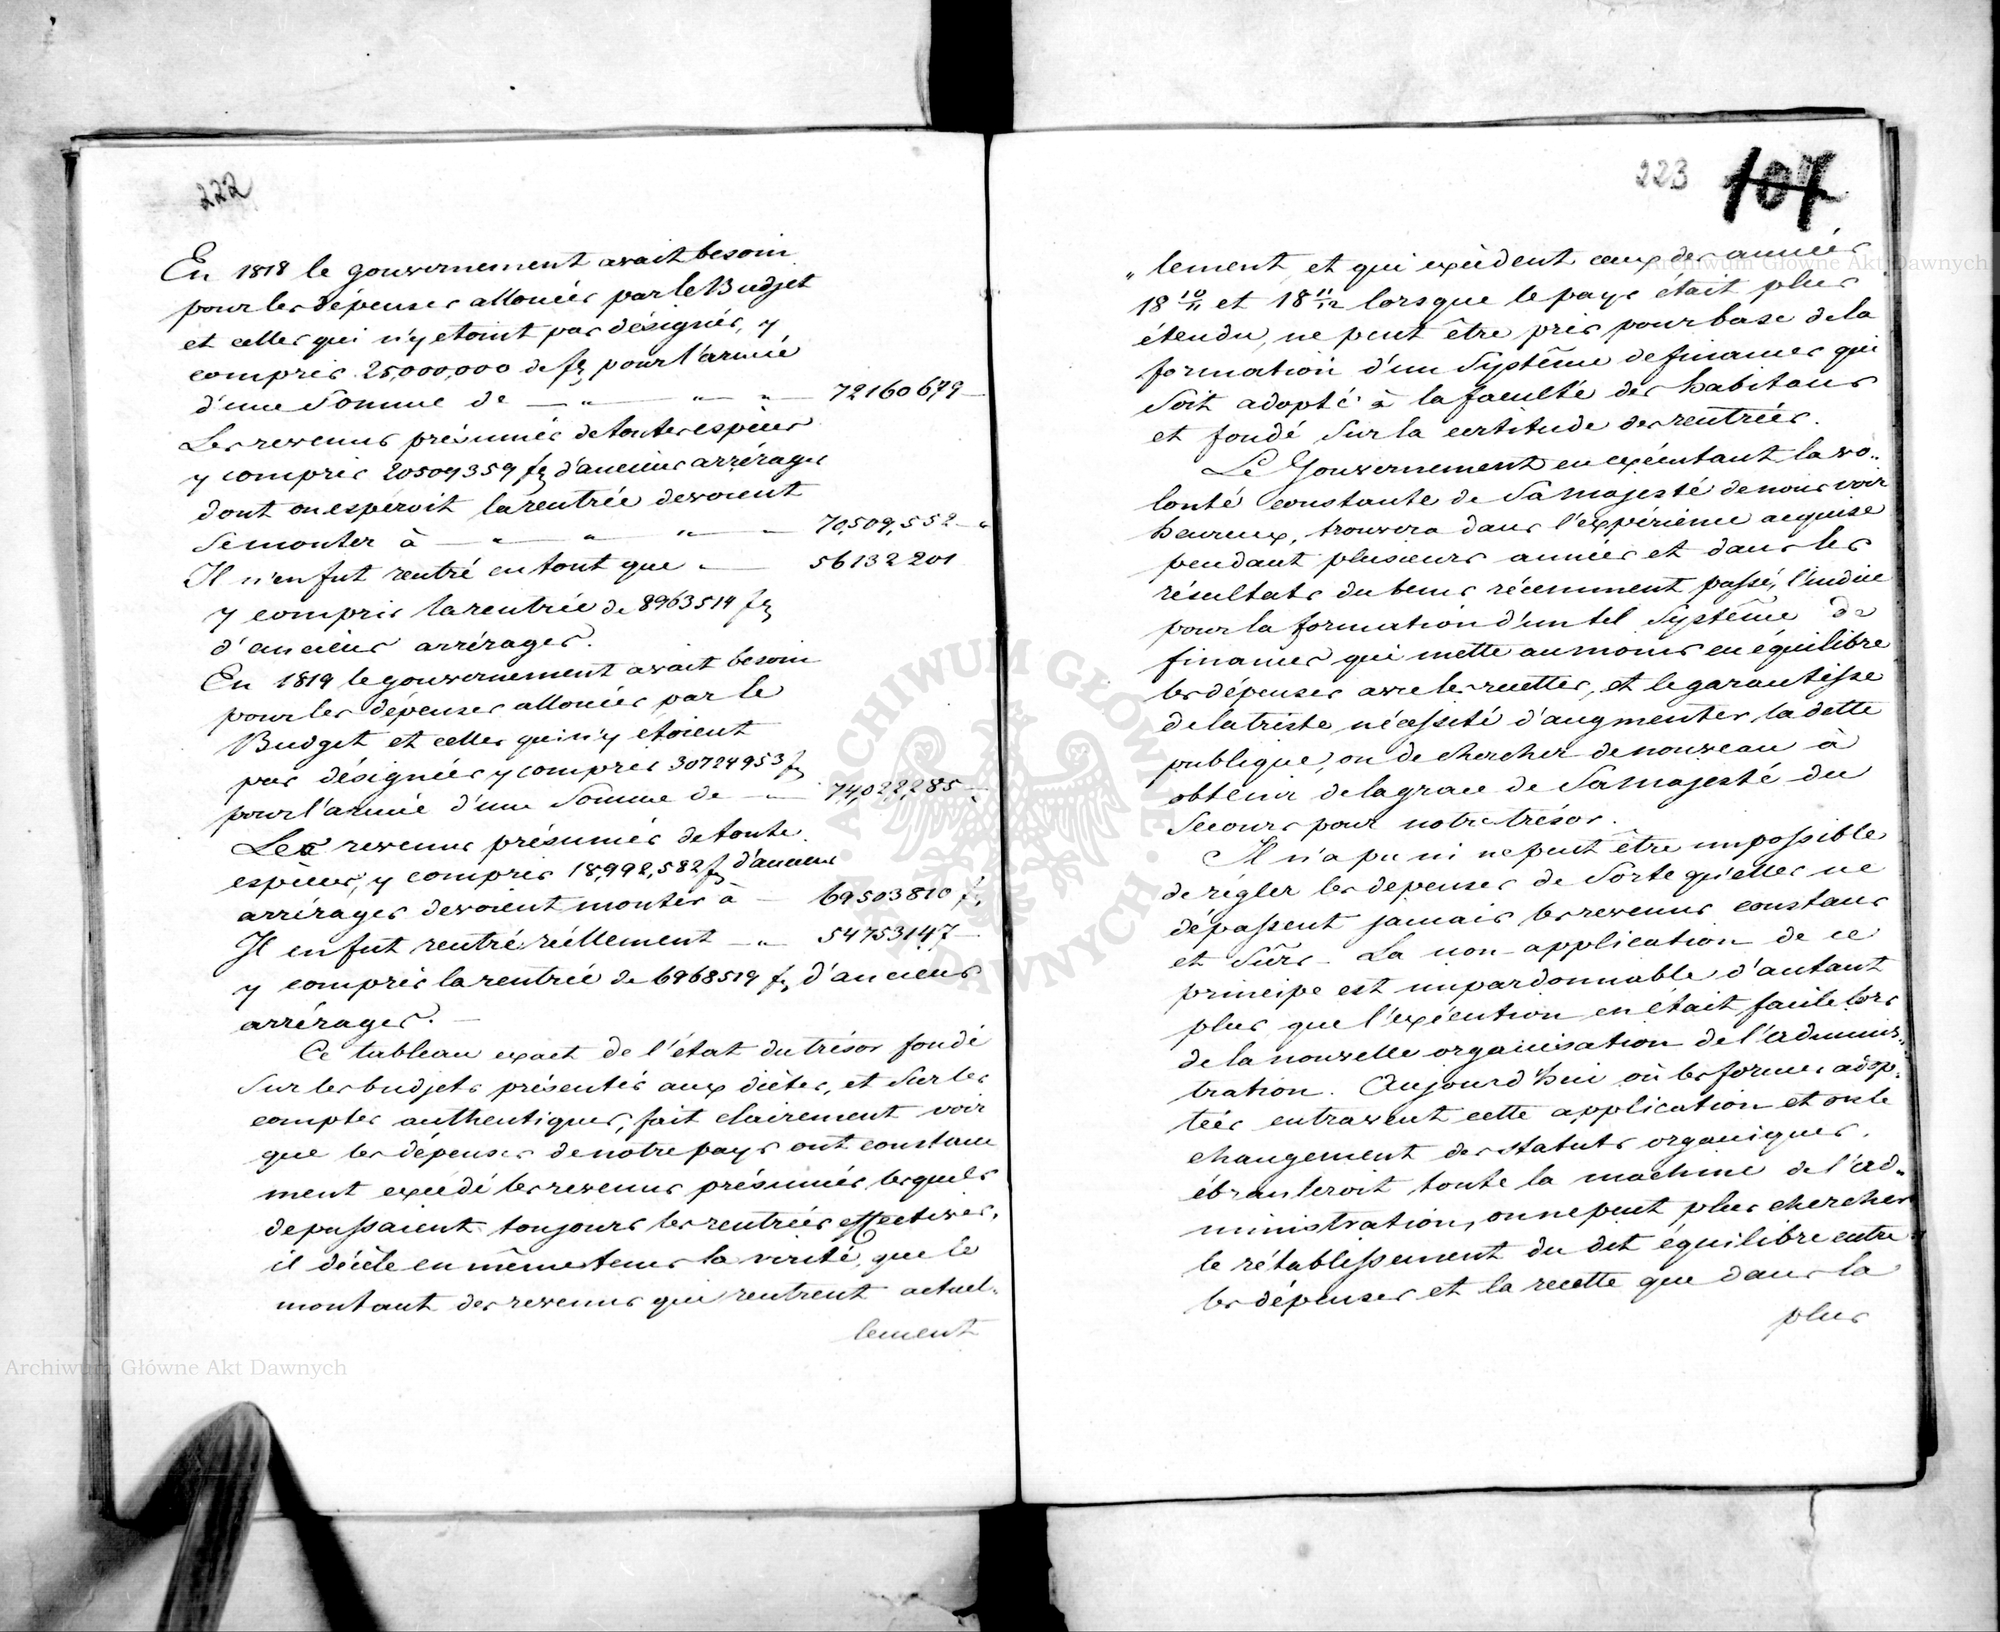 222
En 1818 le gouvernement avait besoin
pour les dépenses allouées par le Budjet
et celles qui n'y etoint pas désignés, y
compris 25,000,000 de fl pour l'armée
d'une Somme de — " — " " — 72160679 —
Les revenus présumés de toutes espèces
y compris 20509359 fl d'anciens arrérages
dont on esperoit la rentrée devoient
se monter à — " — " — " — 70,509,552 — "
Il n'en fut rentré en tout que " — 56132201
y compris la rentrée de 8963514 fl
d'anciens arrérages.
En 1819 le gouvernement avait besoin
pour les dépenses allouées par le
Budget et celles qui n'y étoient
pas désignées y compris 30724953 fl
pour l'armée d'une Somme de — " — 74,022,285 —
Les revenus présumés de toute
espèces, y compris 18,992,582 fl d'anciens
arrérages devoient monter à — 69503810 f,
Il en fut rentré réellement — " — 54753147 —
y compris la rentrée de 6968519 f, d'anciens
arrérages. —
Ce tableau exact de l'état du trésor fondé
Sur les budjets présentés aux diètes, et Sur les
comptes authentiques, fait clairement voir
que les dépenses de notre pays ont constam
ment excédé les revenus présumés lesquels
depassaient toujours les rentrées effectives,
il décèle en même tems la vérité, que le
montant des revenus qui rentrent actuel-
lement
223 107
" lement, et qui excèdent ceux des années
18 10/11 et 18 11/12 lorsque le pays était plus
étendu, ne peut être pris pour base de la
formation d'un Système de finances qui
Soit adopté à la faculté des habitans
et fondé Sur la certitude des rentrées.
Le Gouvernement en exécutant la vo-
lonté constante de Sa Majesté de nous voir
heureux, trouvera dans l'expérience acquise
pendant plusieurs années et dans les
résultats du tems récemment passé, l'indice
pour la formation d'un tel Système de
finances qui mette au moins en équilibre
les dépenses avec les recettes, et le garantisse
de la triste nécessité d'augmenter la dette
publique, ou de chercher de nouveau à
obtenir de la grace de Sa Majesté du
Secours pour notre trésor.
Il n'a pu ni ne peut être impossible
de régler les depenses de Sorte qu'elles ne
dépassent jamais les revenus constans
et Sûrs. La non-application de ce
principe est impardonnable d'autant
plus que l'exécution en était facile lors
de la nouvelle organisation de l'adminis-
tration. Aujourd'hui où les formes adop-
tées entravent cette application et où le
changement des statuts organiques,
ébranleroit toute la machine de l'ad-
ministration, on ne peut plus chercher
le rétablissement du dit équilibre entre
les dépenses et la recette que dans la
plus
ARCHIWUM GŁÓWNE AKT DAWNYCH
Archiwum Główne Akt Dawnych
Archiwum Główne Akt Dawnych